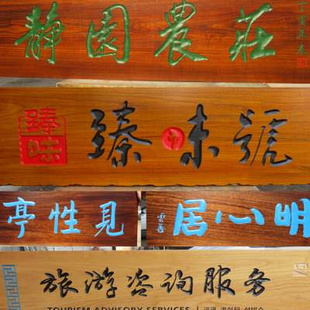 静園農莊
臻味
臻味號
見性亭
明心居
旅游咨询服务
TOURISM ADVISORY SERVICES